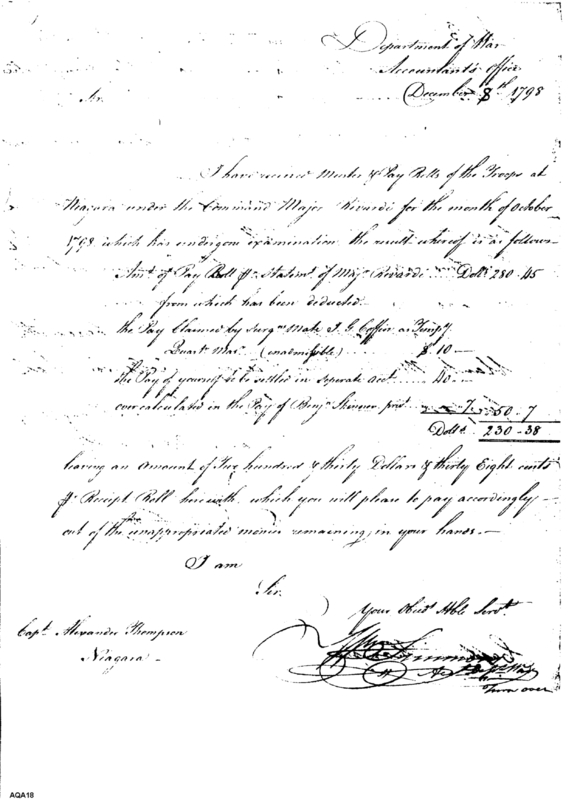 Department of War
Accountants Office
December 8th 1798
Sir
I have received Muster & Pay Rolls of the Troops at
Niagara under the Command Major Rivardi for the month of October
1798 which has undergone examination the result whereof is as follows
Amt. of Pay Roll pr Statemt. of Majr Rivardi Dolls 280-45
from which has been deducted
the Pay Claimed by Surgns Mate J G Coffin as Tempy.
Quartr Mas. (inadmissible) $10 —
the Pay of yourself to be settled in seperate acct. 40 —
over calculated in the Pay of Benjn Skinner 7 50-7
Dolls. 230-38
leaving an Amount of Two hundred & thirty Dollars & thirty Eight cents
pr Receipt Roll herewith which you will please to pay accordingly —
out of the unappropriated monies remaining in your hands. —
I am
Sir
Your Obedt. Hble Servt.
Capt. Alexander Thompson
Niagara —
Wm Simmons
Turn over
AQA18